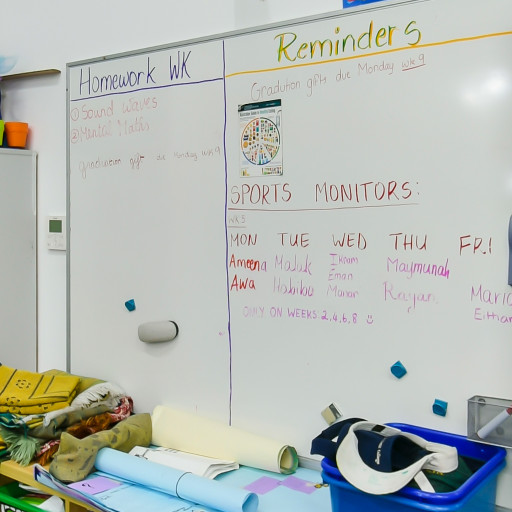 Homework WK
① Sound waves
② Mental Maths
gradution gift due Monday wk 9
Reminders
Gradution gift due Monday wk9
SPORTS MONITORS:
WK3
MON TUE WED THU FRI
Ameena Maluk Ikram Maymunah
Eman
Awa Habiba Rayan Maria
ONLY ON WEEKS: 2, 4, 6, 8 ☺